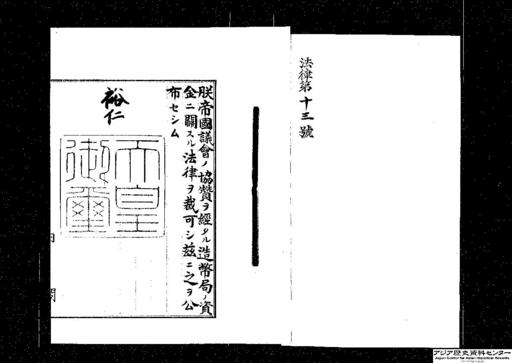 法律第十三號
朕帝國議會ノ協贊ヲ經タル造幣局ノ資
金ニ關スル法律ヲ裁可シ茲ニ之ヲ公
布セシム
裕仁
天皇
御璽
内
閣
アジア歴史資料センター
Japan Center for Asian Historical Records